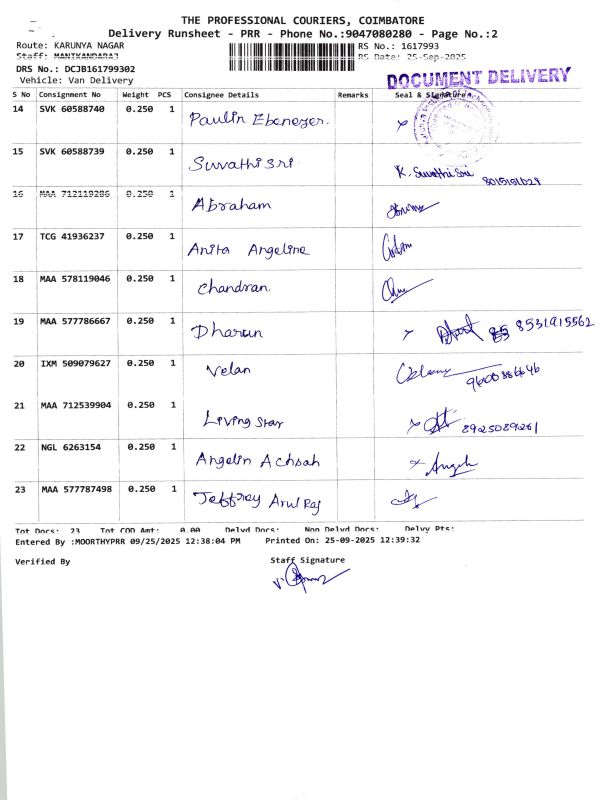 THE PROFESSIONAL COURIERS, COIMBATORE
Delivery Runsheet - PRR - Phone No.:9047080280 - Page No.:2
Route: KARUNYA NAGAR RS No.: 1617993
Staff: MANIKANDARAJ RS Date: 25-Sep-2025
DRS No.: DCJB161799302
Vehicle: Van Delivery
DOCUMENT DELIVERY
S No Consignment No Weight PCS Consignee Details Remarks Seal & Signature
14 SVK 60588740 0.250 1 Paulin Ebenezer.
15 SVK 60588739 0.250 1 Suvathi Sri K. Suvathi Sri
16 MAA 712119286 0.250 1 Abraham
17 TCG 41936237 0.250 1 Anita Angeline
18 MAA 578119046 0.250 1 Chandran.
19 MAA 577786667 0.250 1 Dharun 8531915562
20 IXM 509079627 0.250 1 Velan
21 MAA 712539904 0.250 1 Living Star
22 NGL 6263154 0.250 1 Angelin Achsah
23 MAA 577787498 0.250 1 Jeffrey Arul Raj
Tot Docs: 23 Tot COD Amt: 0.00 Delvd Docs: Non Delvd Docs: Delvy Pts:
Entered By :MOORTHYPRR 09/25/2025 12:38:04 PM Printed On: 25-09-2025 12:39:32
Verified By Staff Signature